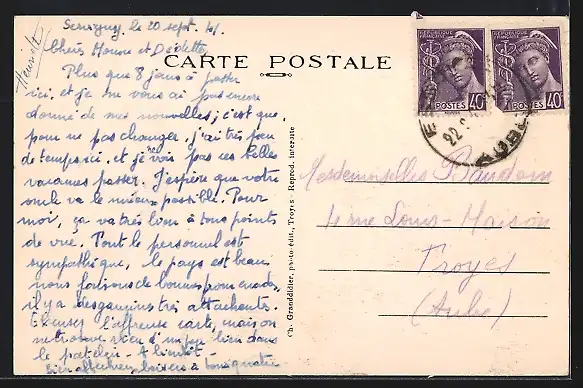 Servigny, le 20 sept. 41.
Henriette
Chères Monon et Dédette
CARTE POSTALE
Plus que 8 jours à passer
ici, et je ne vous ai pas encore
donné de mes nouvelles; c'est que,
pour ne pas changer, j'ai très peu
de temps ici, et je vois pas ces belles
vacances passer. J'espère que votre
oncle va le mieux possible. Pour
moi, ça va très bien à tous points
de vue. Tout le personnel est
sympathique, le pays est beau
nous faisons de bonnes promenades,
il y a des gamins très attachants.
Excusez l'affreuse carte, mais on
ne trouve rien d'un peu bien dans
le patelin - A bientôt -
Bien affectueux baisers à tous quatre
REPUBLIQUE FRANÇAISE
POSTES 40c
REPUBLIQUE FRANÇAISE
POSTES 40c
22
AUBE
Mesdemoiselles Baudoin
4 rue Louis-Maison
Troyes
(Aube)
Ch. Granddidier, photo-édit., Troyes - Reprod. interdite